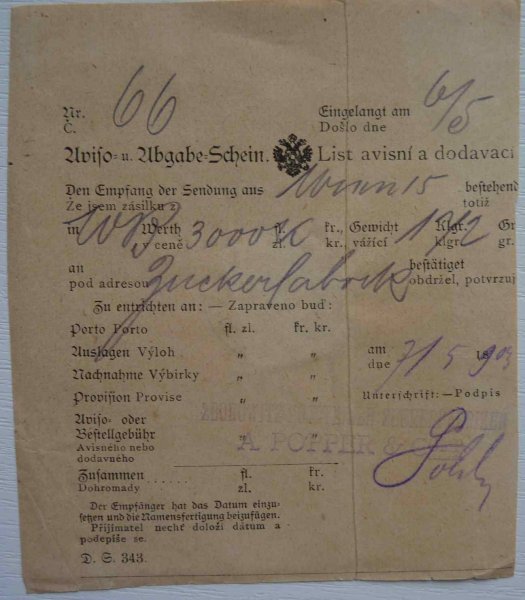 Nr. 66 Eingelangt am 6/5
Č. Došlo dne
Aviso- u. Abgabe-Schein. List avisní a dodavací
Den Empfang der Sendung aus Wien 15 bestehend
Že jsem zásilku z totiž
in Werth 3000 K fl. kr., Gewicht 1 1/2 Klgr. Gr
v ceně zl. kr., vážící klgr.
an Zuckerfabrik bestätiget
pod adresou obdržel, potvrzuj
Zu entrichten an: — Zapraveno buď:
Porto Porto fl. zl. kr. kr.
Auslagen Výloh „ „ am 7/5 1903
Nachnahme Výbirky „ „ dne
Provision Provise „ „ Unterschrift: — Podpis
Aviso- oder
Bestellgebühr „ „
Avisného nebo
dodavného
A. POPPER &
Zusammen fl. kr.
Dohromady zl. kr.
Der Empfänger hat das Datum einzu-
setzen und die Namensfertigung beizufügen.
Příjimatel nechť doloží datum a
podepíše se.
D. S. 343.